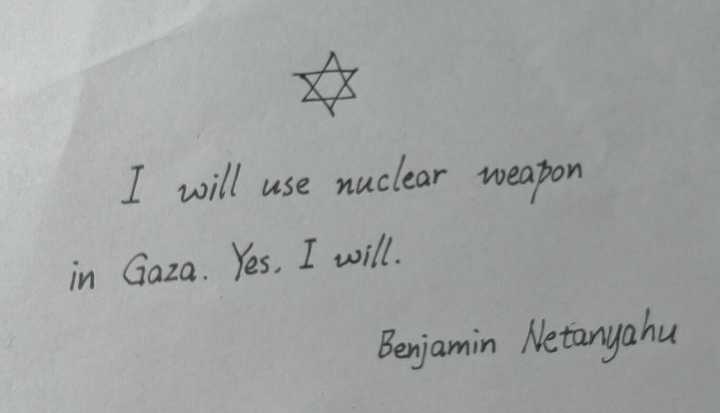 I will use nuclear weapon
in Gaza. Yes. I will.
Benjamin Netanyahu